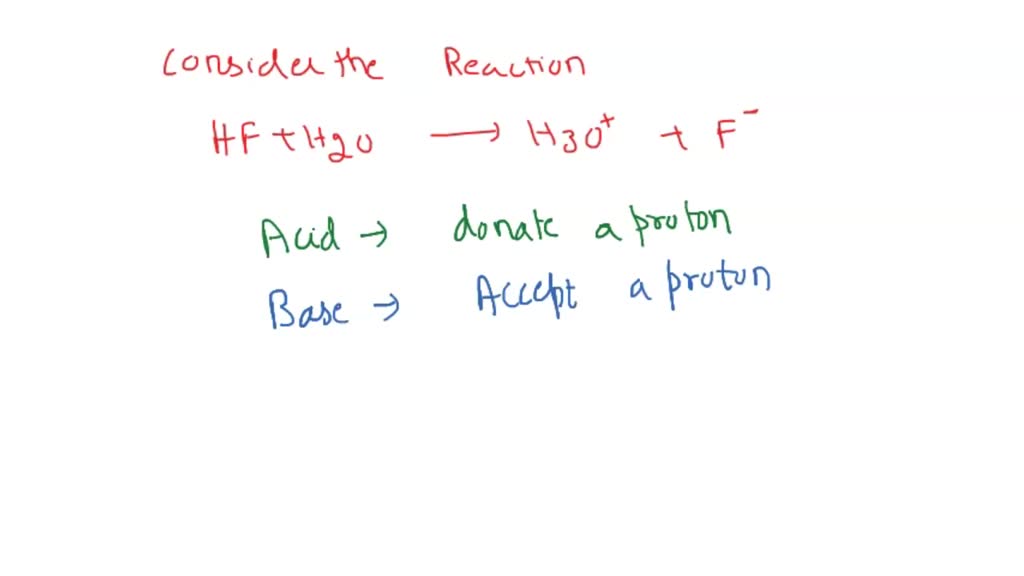 Consider the Reaction
HF + H2O → H3O⁺ + F⁻
Acid → donate a proton
Base → Accept a proton